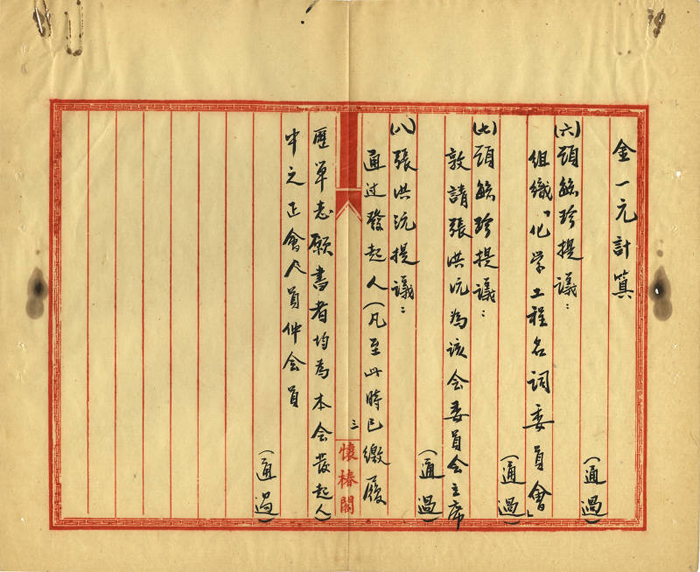 金一元計算
(通過)
(六)顧毓珍提議：
組織「化学工程名詞委員會」
(通過)
(七)顧毓珍提議：
敦請張洪沅為該会委員会主席
(通過)
(八)張洪沅提議：
通过發起人(凡至此時已繳履
三
懷椿閣
歷單志願書者均為本会發起人)
中之正會員仲会員
(通過)